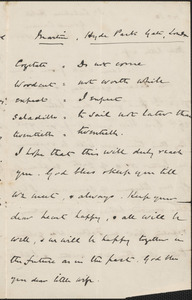 Martin, Hyde Park Gate, London
Cogitate = Do not come
Woodcut = not worth while
= I expect
Saladillo = to sail not later than
twentieth = twentieth.
I hope that this will duly reach
you. God bless & keep you till
we meet, & always. Keep your
dear heart happy, & all will be
well, & we will be happy together in
the future as in the past. God bless
you dear little wife.